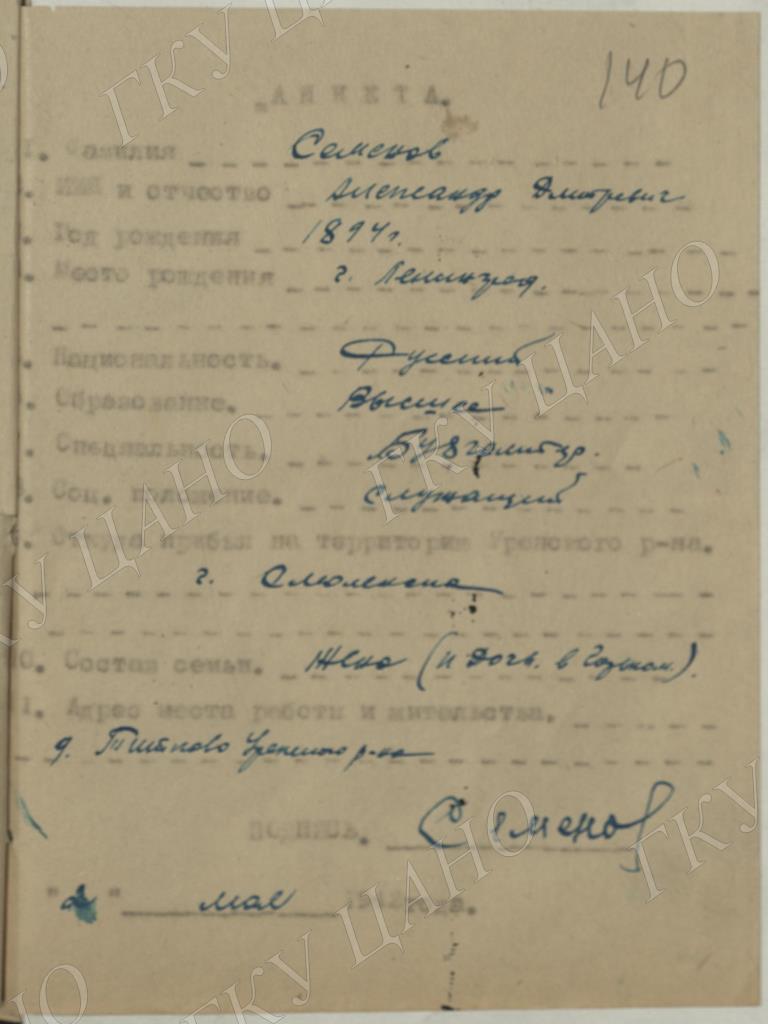 140
АНКЕТА.
1. Фамилия Семенов
. Имя и отчество Александр Дмитревич
. Год рождения 1894 г.
. Место рождения г. Ленинград.
. Национальность. Русский
. Образование. Высшее
. Специальность. Бухгалтер.
. Соц. положение. служащий
. Откуда прибыл на территорию Уренского р-на.
г. Смоленска
10. Состав семьи. жена (и дочь в
1. Адрес места работы и жительства.
д. Уренского р-на
подпись. Семенов
"2" мая 1942 года.
ГКУ ЦАНО
ГКУ ЦАНО
ГКУ ЦАНО
ГКУ ЦАНО
ГКУ ЦАНО